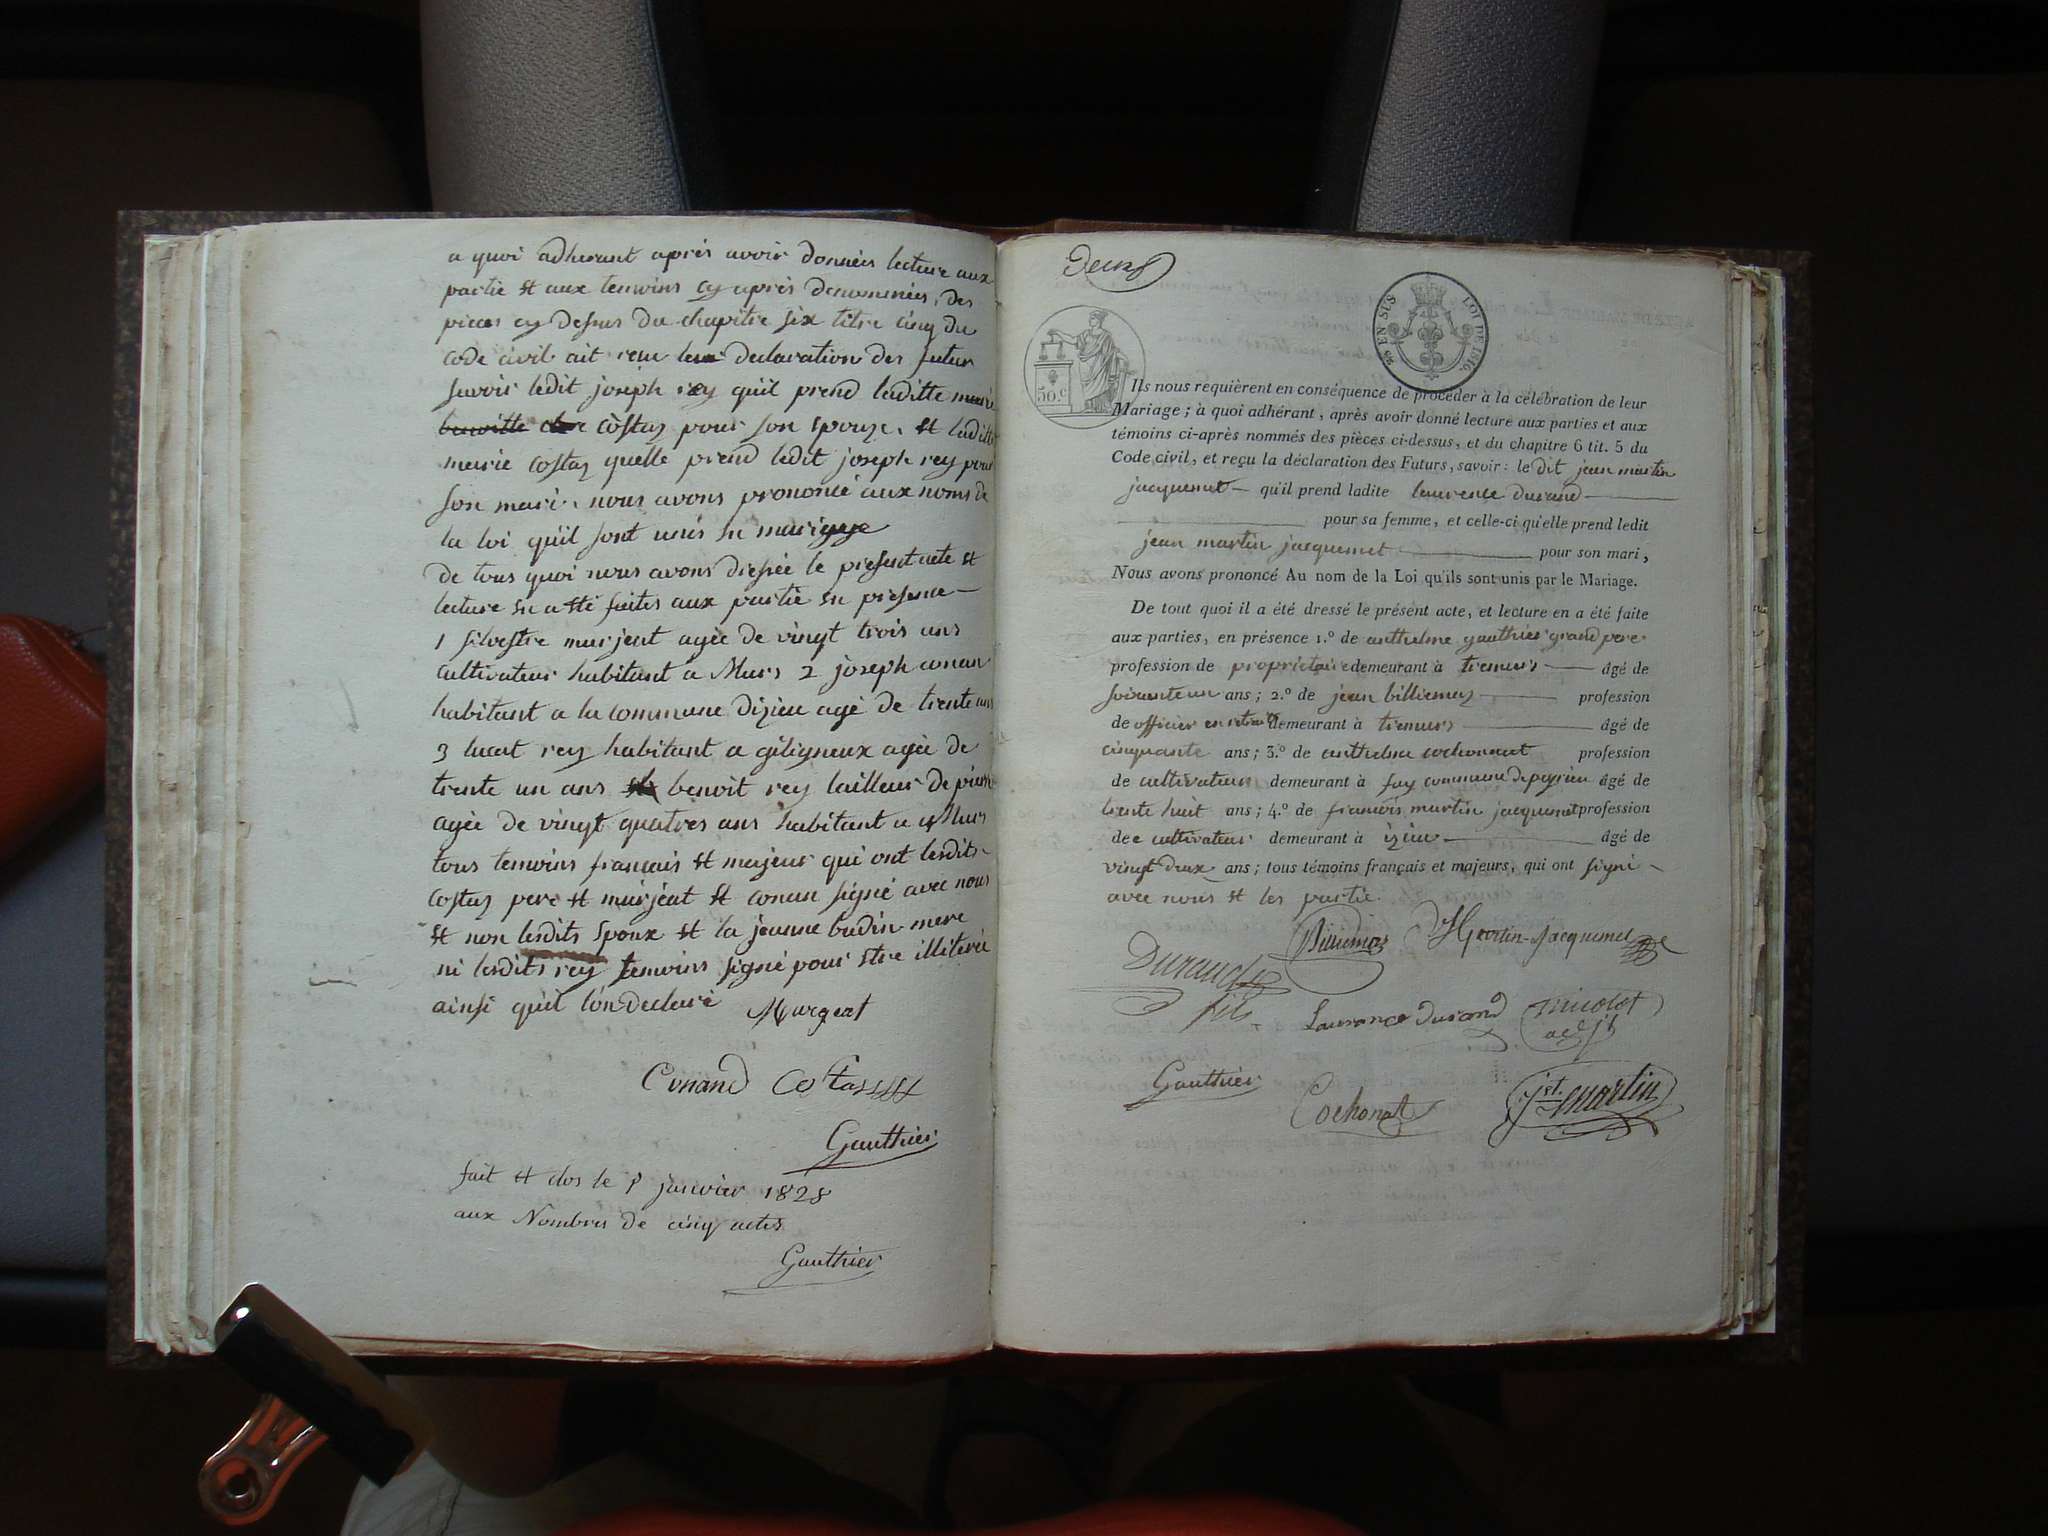 a quoi adherant aprés avoir donnéés lecture aux
partie et aux temoins cy aprés denommées, des
pieces cy dessus du chapitre six titre cinq du
code civil ait reçu leur declaration des futur
savoir ledit joseph rey quil prend laditte marie
costaz pour son epouze, et laditte
marie costaz quelle prend ledit joseph rey pour
son mari, nous avons prononcé aux noms de
la loi qu'il sont unis en mariage
De tous quoi nous avons dressée le present acte et
lecture en a été faites aux partie en presence
1 silvestre murjeat agée de vingt trois ans
cultivateur habitant a Murs 2 joseph conan
habitant a la commune dizieu agé de trente ans
3 lucat rey habitant a giligneux agée de
trente un ans benoit rey tailleur de pierre
agée de vingt quatres ans habitant a Murs
tous temoins francais et majeur qui ont lesdits
costaz pere et murjeat et conan signé avec nous
et non lesdits epoux et la jeanne budin mere
ni lesdits rey temoins signé pour etre illiteréé
ainsi qu'il l'on declaré Murgeat
Conand Costaz
Gauthier
fait et clos le 1 janvier 1828
aux Nombres de cinq actes
Gauthier
deux
EN SUS LOI DE 1816.
50.c
Ils nous requièrent en conséquence de procéder à la célébration de leur
Mariage ; à quoi adhérant, après avoir donné lecture aux parties et aux
témoins ci-après nommés des pièces ci-dessus, et du chapitre 6 tit. 5 du
Code civil, et reçu la déclaration des Futurs, savoir : le dit jean martin
jacquemet qu'il prend ladite laurence durand
pour sa femme, et celle-ci qu'elle prend ledit
jean martin jacquemet pour son mari,
Nous avons prononcé Au nom de la Loi qu'ils sont unis par le Mariage.
De tout quoi il a été dressé le présent acte, et lecture en a été faite
aux parties, en présence 1.º de anthelme gauthier grand pere
profession de proprietaire demeurant à tremurs âgé de
soixante un ans ; 2.º de jean billiemaz profession
de officier en retraite demeurant à tremurs âgé de
cinquante ans ; 3.º de anthelme cochonaut profession
de cultivateur demeurant à fay commune de peyrieu âgé de
trente huit ans ; 4.º de francois martin jacquemet profession
de cultivateur demeurant à izieu âgé de
vingt deux ans ; tous témoins français et majeurs, qui ont signé
avec nous et les partie.
Billiemaz Martin-Jacquemet
Durand
fils
Laurance Durand
Gauthier Cochonat jst. martin